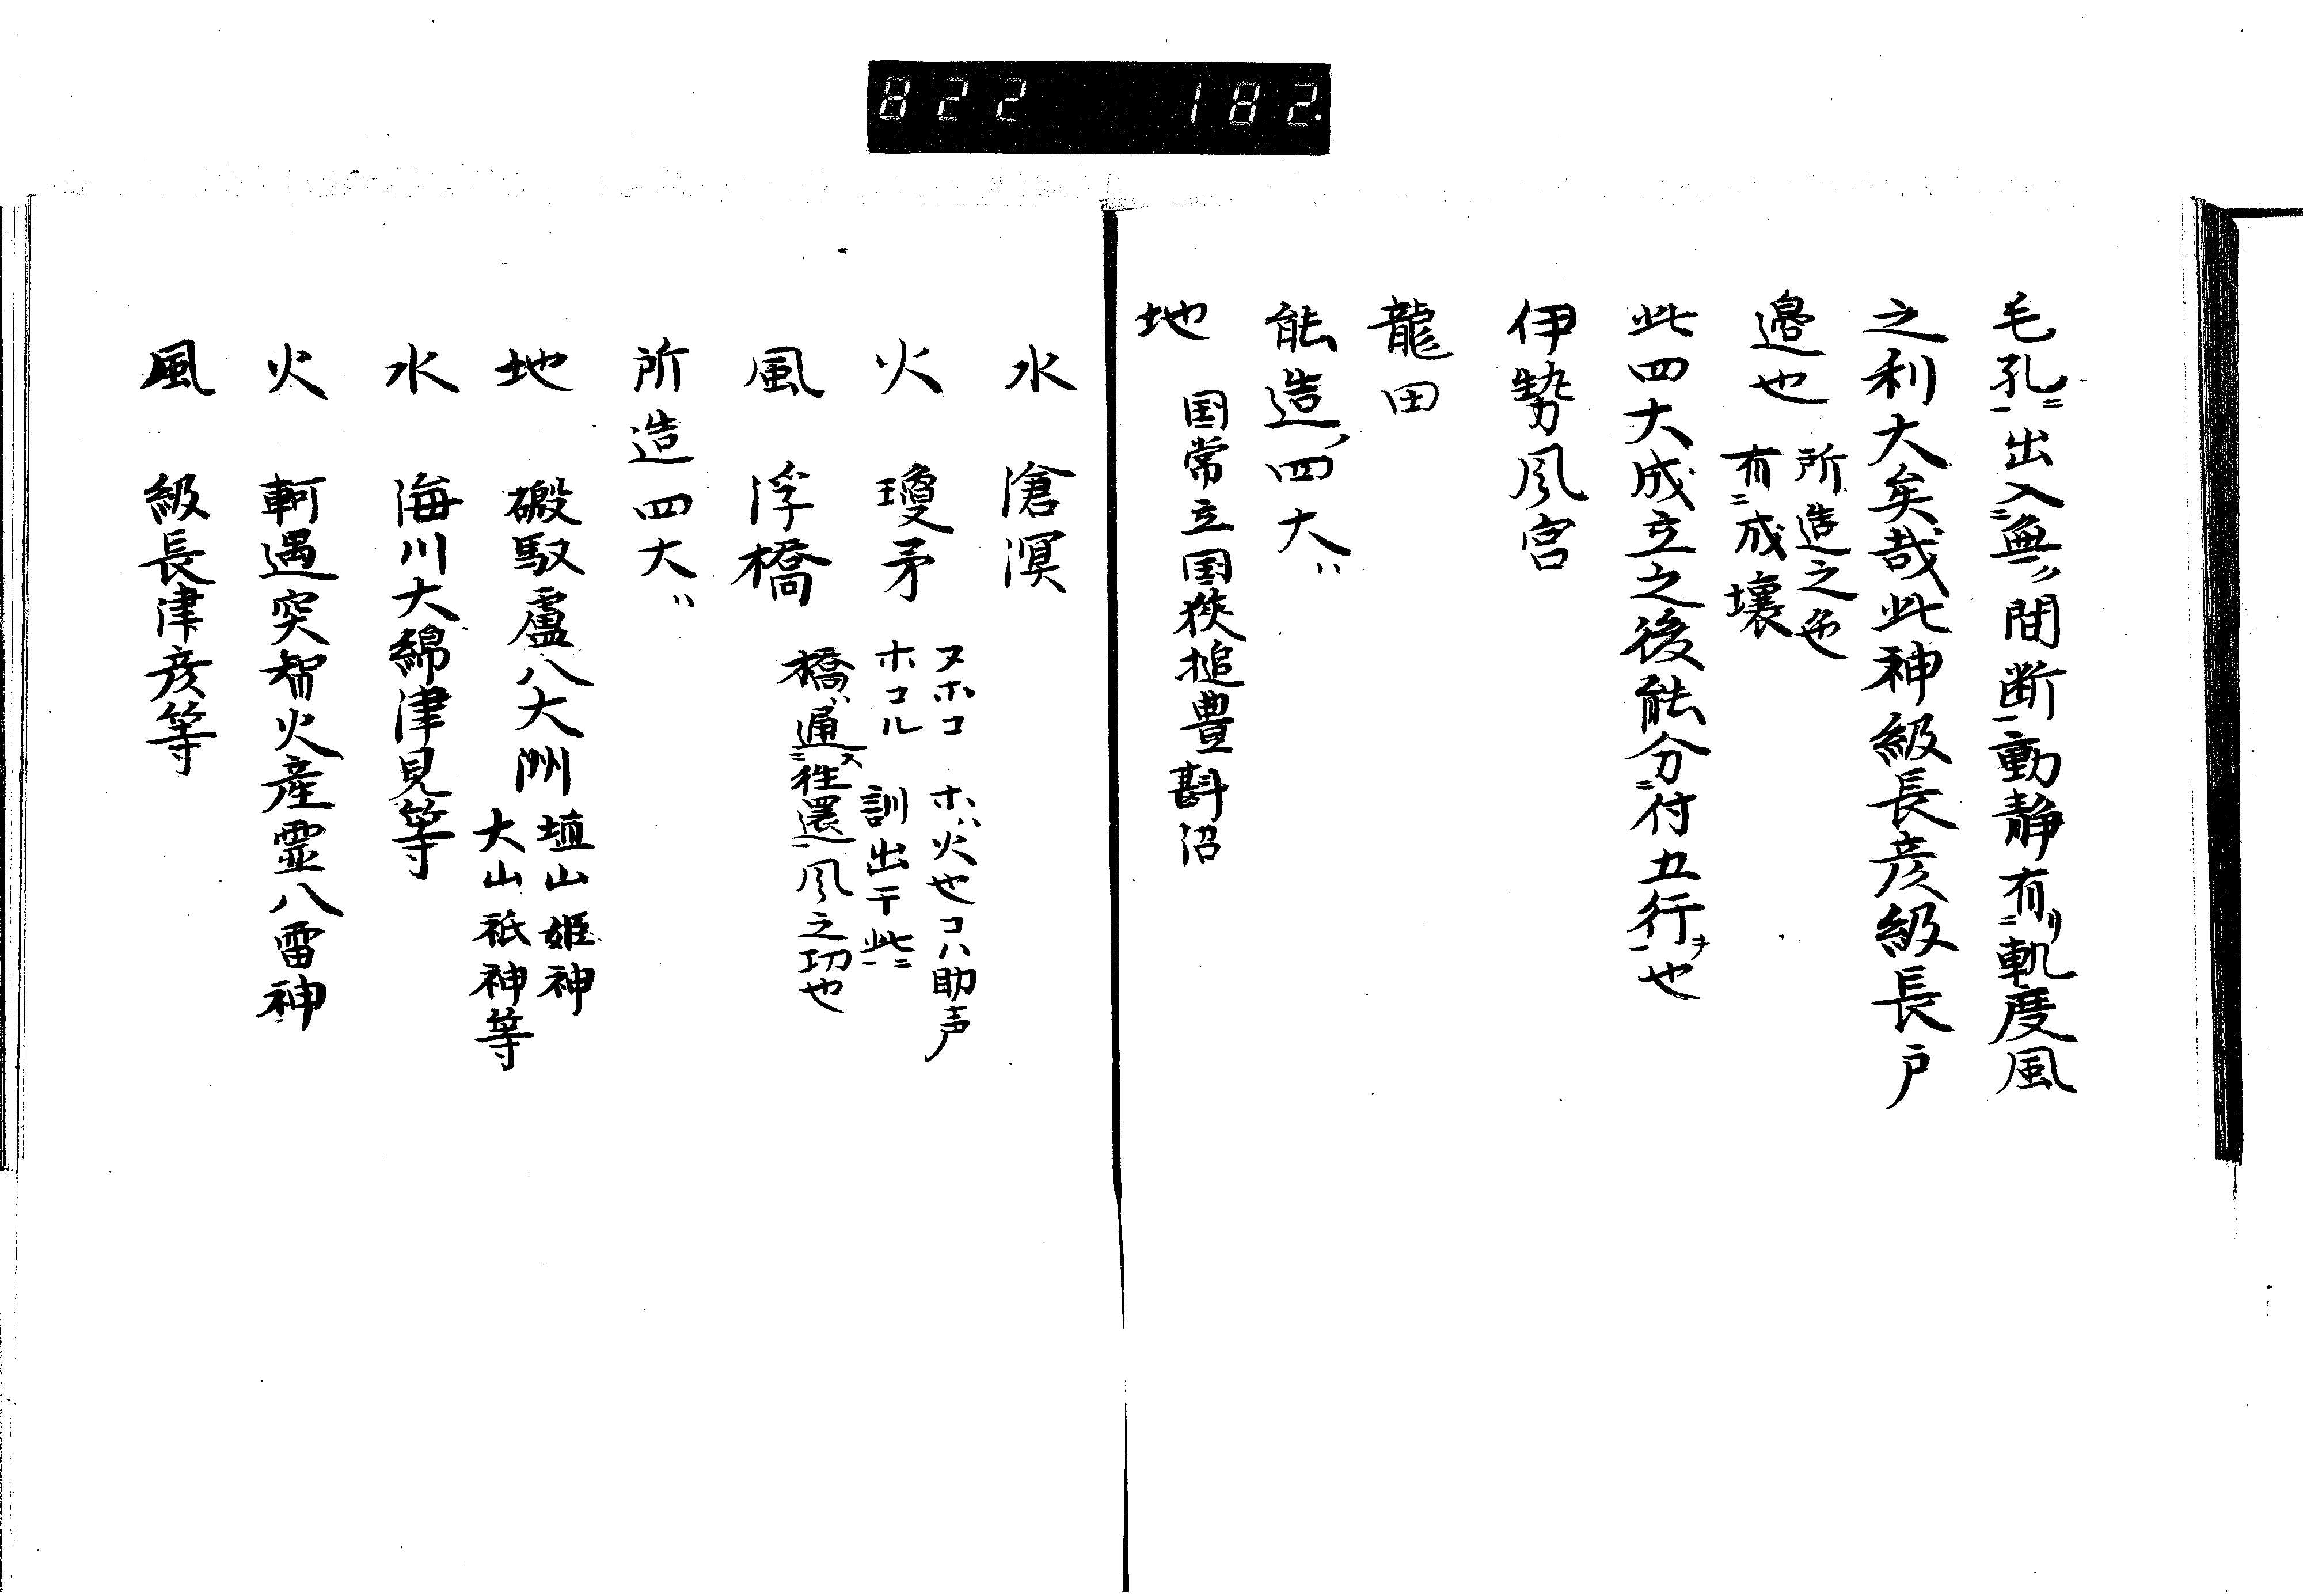 822 182.
毛孔ニ一出入ニ無ッ間断一動静有リニ軌度風
之利大矣哉此神級長彦級長戸
邉也
所造之色
有ニ成壞
此四大成立之後能分ニ付五行ヲ一也
伊勢风宮
龍田
能造ノ四大ハ
地 国常立国狹槌豊斟沼
水 滄溟
火 瓊矛
ヌホコ ホハ火也コハ助声
ホコル 訓出干此ニ一
風 浮橋
橋ハ通ニス往還一风之功也
所造四大ハ
地 磤馭盧八大洲
埴山姫神
大山祇神等
水 海川大綿津見等
火 軻遇突智火産霊八雷神
風 級長津彦等